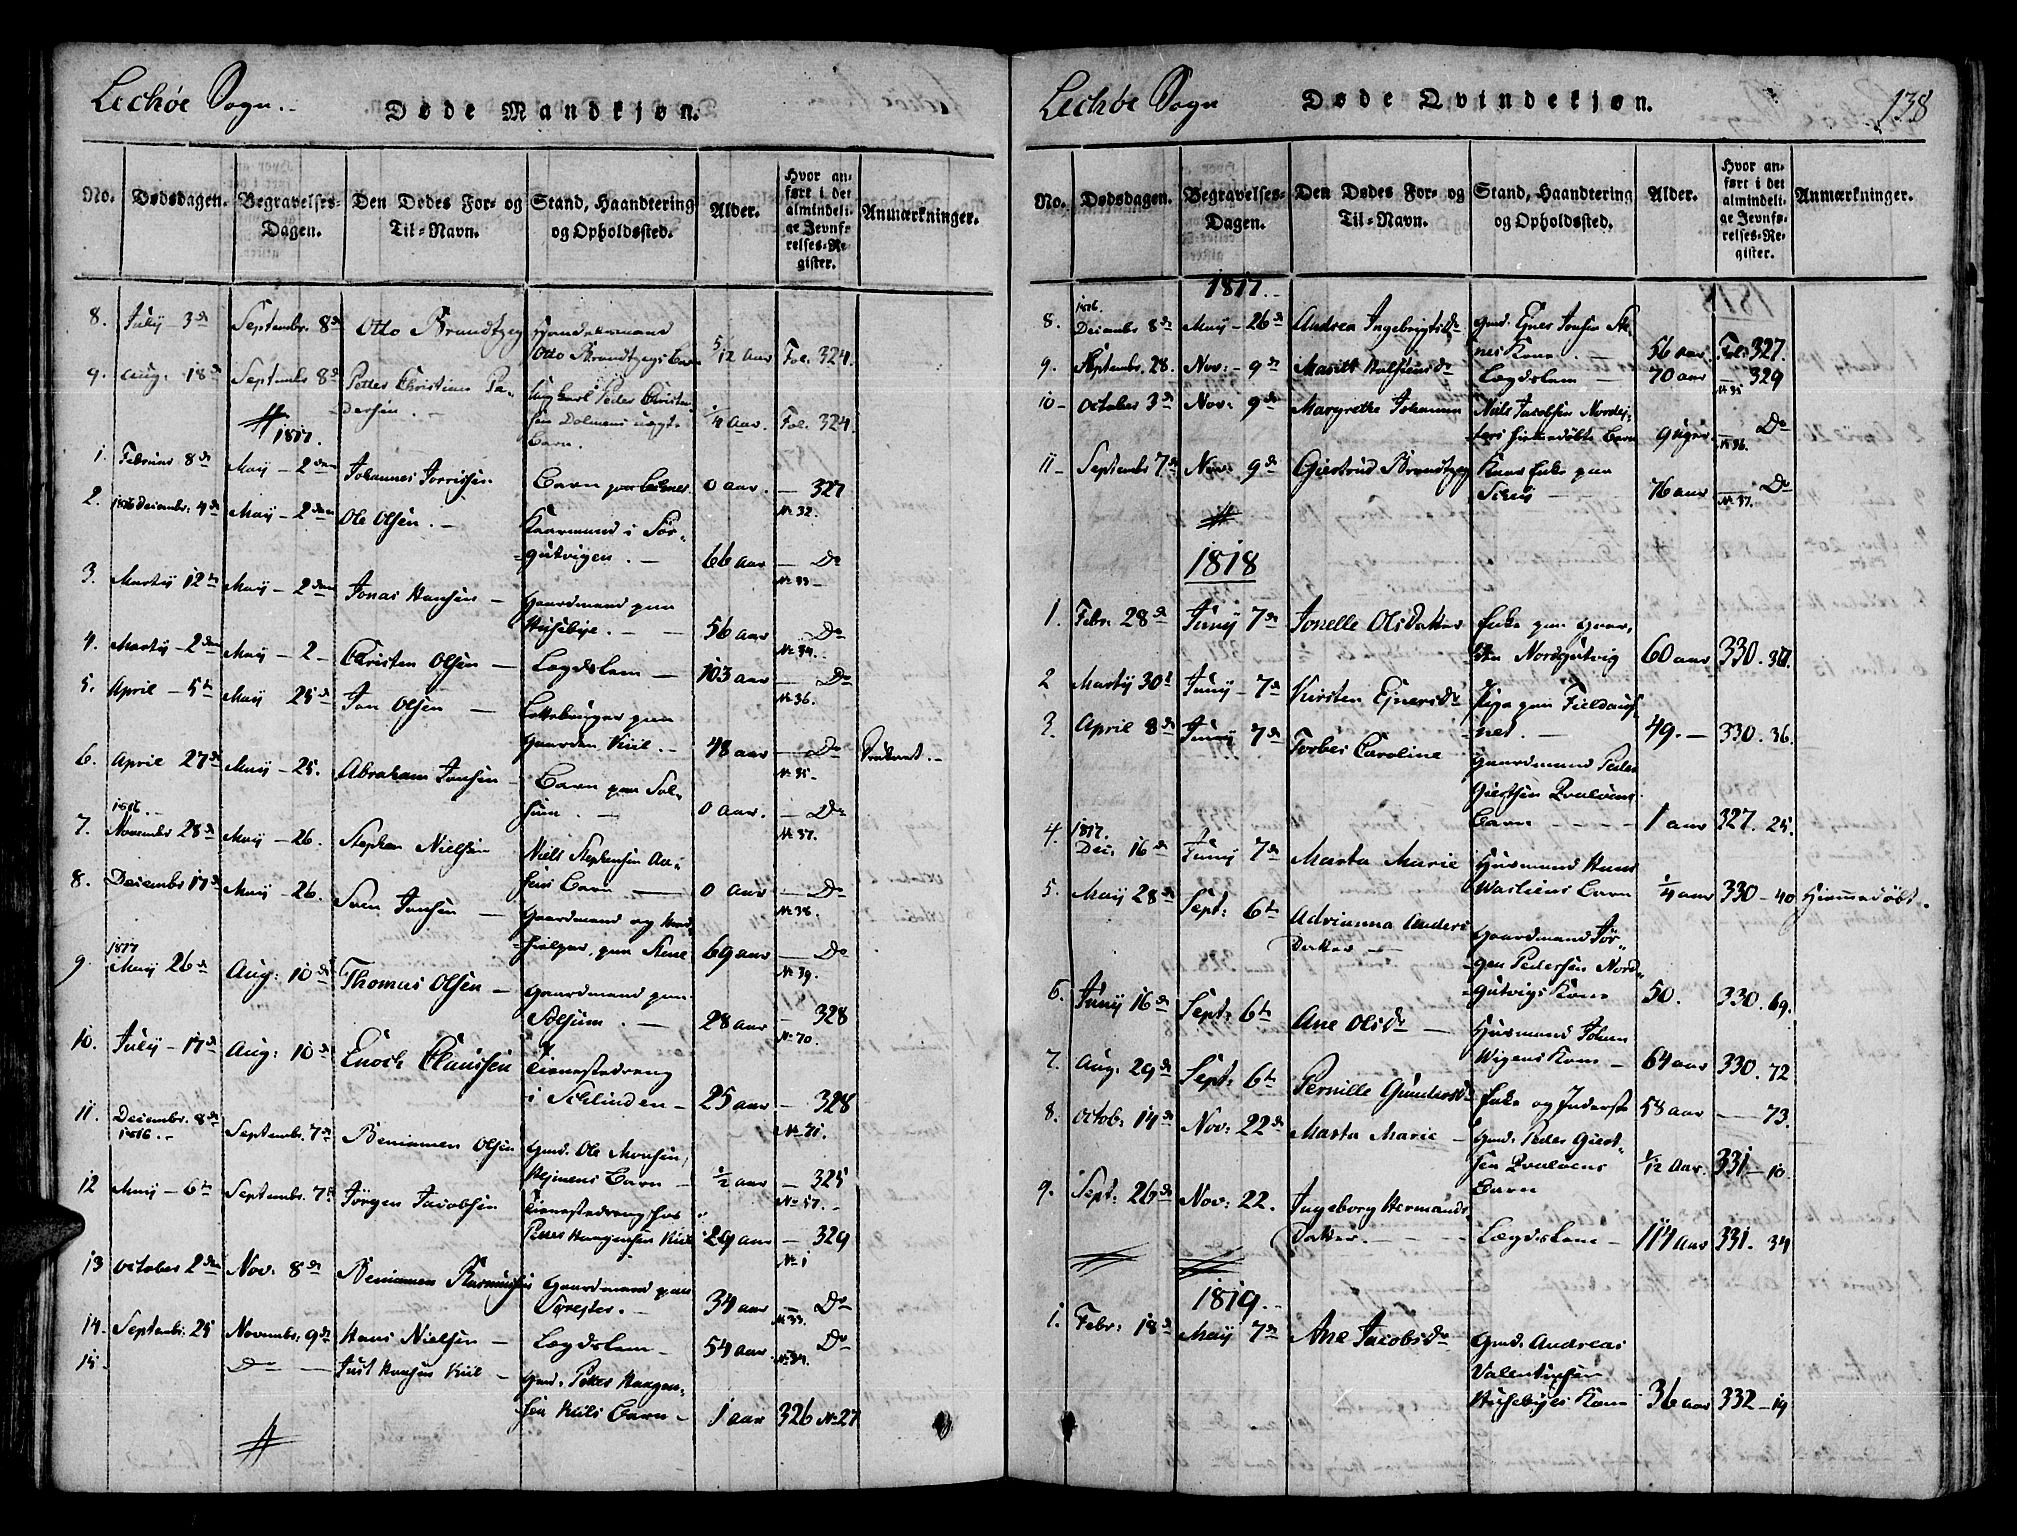 Lechøe Sogn.
Døde Mandkjøn.
No.
Dødsdagen.
Begravelses-
Dagen.
Den Dødes For- og
Til-Navn.
Stand, Haandtering
og Opholdssted.
Alder.
Hvor an-
ført i det
almindeli-
ge Jevnfø-
relses-Re-
gister.
Anmærkninger.
8. July - 3d Septembr. 8d Otto Brandtzeg
Otto Brandtzegs Barn 5/12 aar Fol. 324.
9. Aug. 18d Septembr 8d Petter Christian Pe-
dersen. Ungkarl Peder Christi-
Barn. 1/4 aar. Fol. 324.
1817.
1. Februar 8de May - 2den Johannes Jorrissen Barn 0 aar. - 327
No 32.
2. 1816 Decembr. 4de May - 2den Ole Olsen. - Kaarmand i Sør-
gutvigen. - 66 aar - Do
No 33 -
3. Martij 12te May - 2den Jonas Hansen - Gaardmand paa
Husebye. - 56 aar - Do
No 34.
4. Martij 2den May - 2 - Christen Olsen - Lægdslem - 103 aar - Do
No 36.
5. April - 5te May 25de Jon Olsen -
Gaarden Kiil. - 48 aar - Do
No 35 -
6. April 27de May - 25. Abraham Jonsen - Barn paa Sol-
sum. - 0 aar. - Do
No 37.
1816.
7. Novembr 28de May - 26. Stephen Nielsen Niels Stephensen
Barn - 0 aar - Do
No 38.
8. Decembr 17de May - 26. Sven Jonsen - Gaardmand og Med-
hielper paa Stene 69 aar - Do
No 39.
1817
9. May 26de Aug: 10de Thomas Olsen - Gaardmand paa
Solsum. - 28 aar - 328
No 70.
10. July - 17de Aug: 10de Enoch Claussen Tienestedreng
i Schlinden - 25 aar - 328
No 71.
11. Decembr. 8de
1816. - Septemb. 7de Beniamen Olsen Gmd. Ole Monsen
Barn - 1/2 aar - 325
No 57.
12 May - 6te Septembr. 7de Jörgen Jacobsen Tienestedreng hos
Petter Haagensen Kiil 29 aar - 329
No 1
13 October 2den Nov: 8de Beniamen Rasmussen Gaardmand paa
34 aar - Do
No 33.
14. Septembr: 25 Novembr: 9de Hans Nielsen - Lægdslem - 54 aar. Do
No 34.
15 - Do - Just Hansen Kiil - Gmd. Petter Haagen-
sen Kiils Barn - 1 aar 326 No 27
Lechøe Sogn
Døde Qvindekjøn.
138
No.
Dødsdagen.
Begravelses-
Dagen.
Den Dødes For- og
Til-Navn.
Stand, Haandtering
og Opholdssted.
Alder.
Hvor an-
ført i det
almindeli-
ge Jevnfø-
relses-Re-
gister.
Anmærkninger.
1817.
1816.
8. Decembr 8de May - 26de Andrea Ingebrigtsdr Gmd. Ejner Jonsen Ste-
nes Kone. - 56 aar. Fol: 327.
9. Septembr. 28. Nov: - 9de Marith Lægdslem - 70 aar - 329
No 35
10 - October 3de Nov: 9de Margrethe Johanna Niels Jacobsen
hiemedøbte Barn 9 Uger. - Do
No 36.
11 - Septembr 7de Nov: 9de Giertrud Brandtzeg Kaar Enke paa
76 aar - Do
No 37.
1818
1. Febr. 28de Juny 7de Jonelle Olsdatter Enke paa Gaar-
den Nordgutvig 60 aar 330.
2 Martij 30te Juny - 7de Kirsten Ejnersdr Pige paa
- 49. - 330. 36.
3. April 8de Juny 7de Torber Caroline Gaardmand Peder
Giertsen Qvaløens
Barn - 1 aar 327. 25.
1817.
4. Dec. 16de Juny 7de Marta Marie Husmand Hans
Barn 1/4 aar 330 - 40 Hiemmedøbt.
5. May 28de Sept: 6te Adrianna Anders
Datter - Gaardmand Jör-
gen Pedersen Nord-
gutvigs Kone 50. 330. 69.
6. Juny 16de Sept: 6te Ane Olsdr - Husmand Johan
Kone - 64 aar 330. 72
7. Aug: 29de Sept: 6te Pernille Gundersdr Enke og Inderste 58 aar - 73.
8. Octob: 14de Nov: 22de Marta Marie - Gmd. Peder Giert-
sen Qvaløens
Barn 1/12 Aar. 331 - 10.
9. Sept: 26de Nov: 22. Ingeborg Hermands-
Datter. - Lægdslem - 114 aar 331. 34
1819.
1. Febr: 18de May 7de Ane Jacobsdr Gmd. Andreas
Valentinsen
Husebyes Kone 36 aar 332 - 14